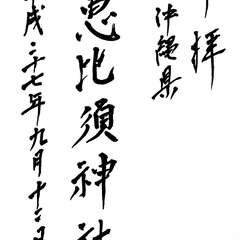 拝
沖縄県
恵比須神社
成二十七年九月十二日